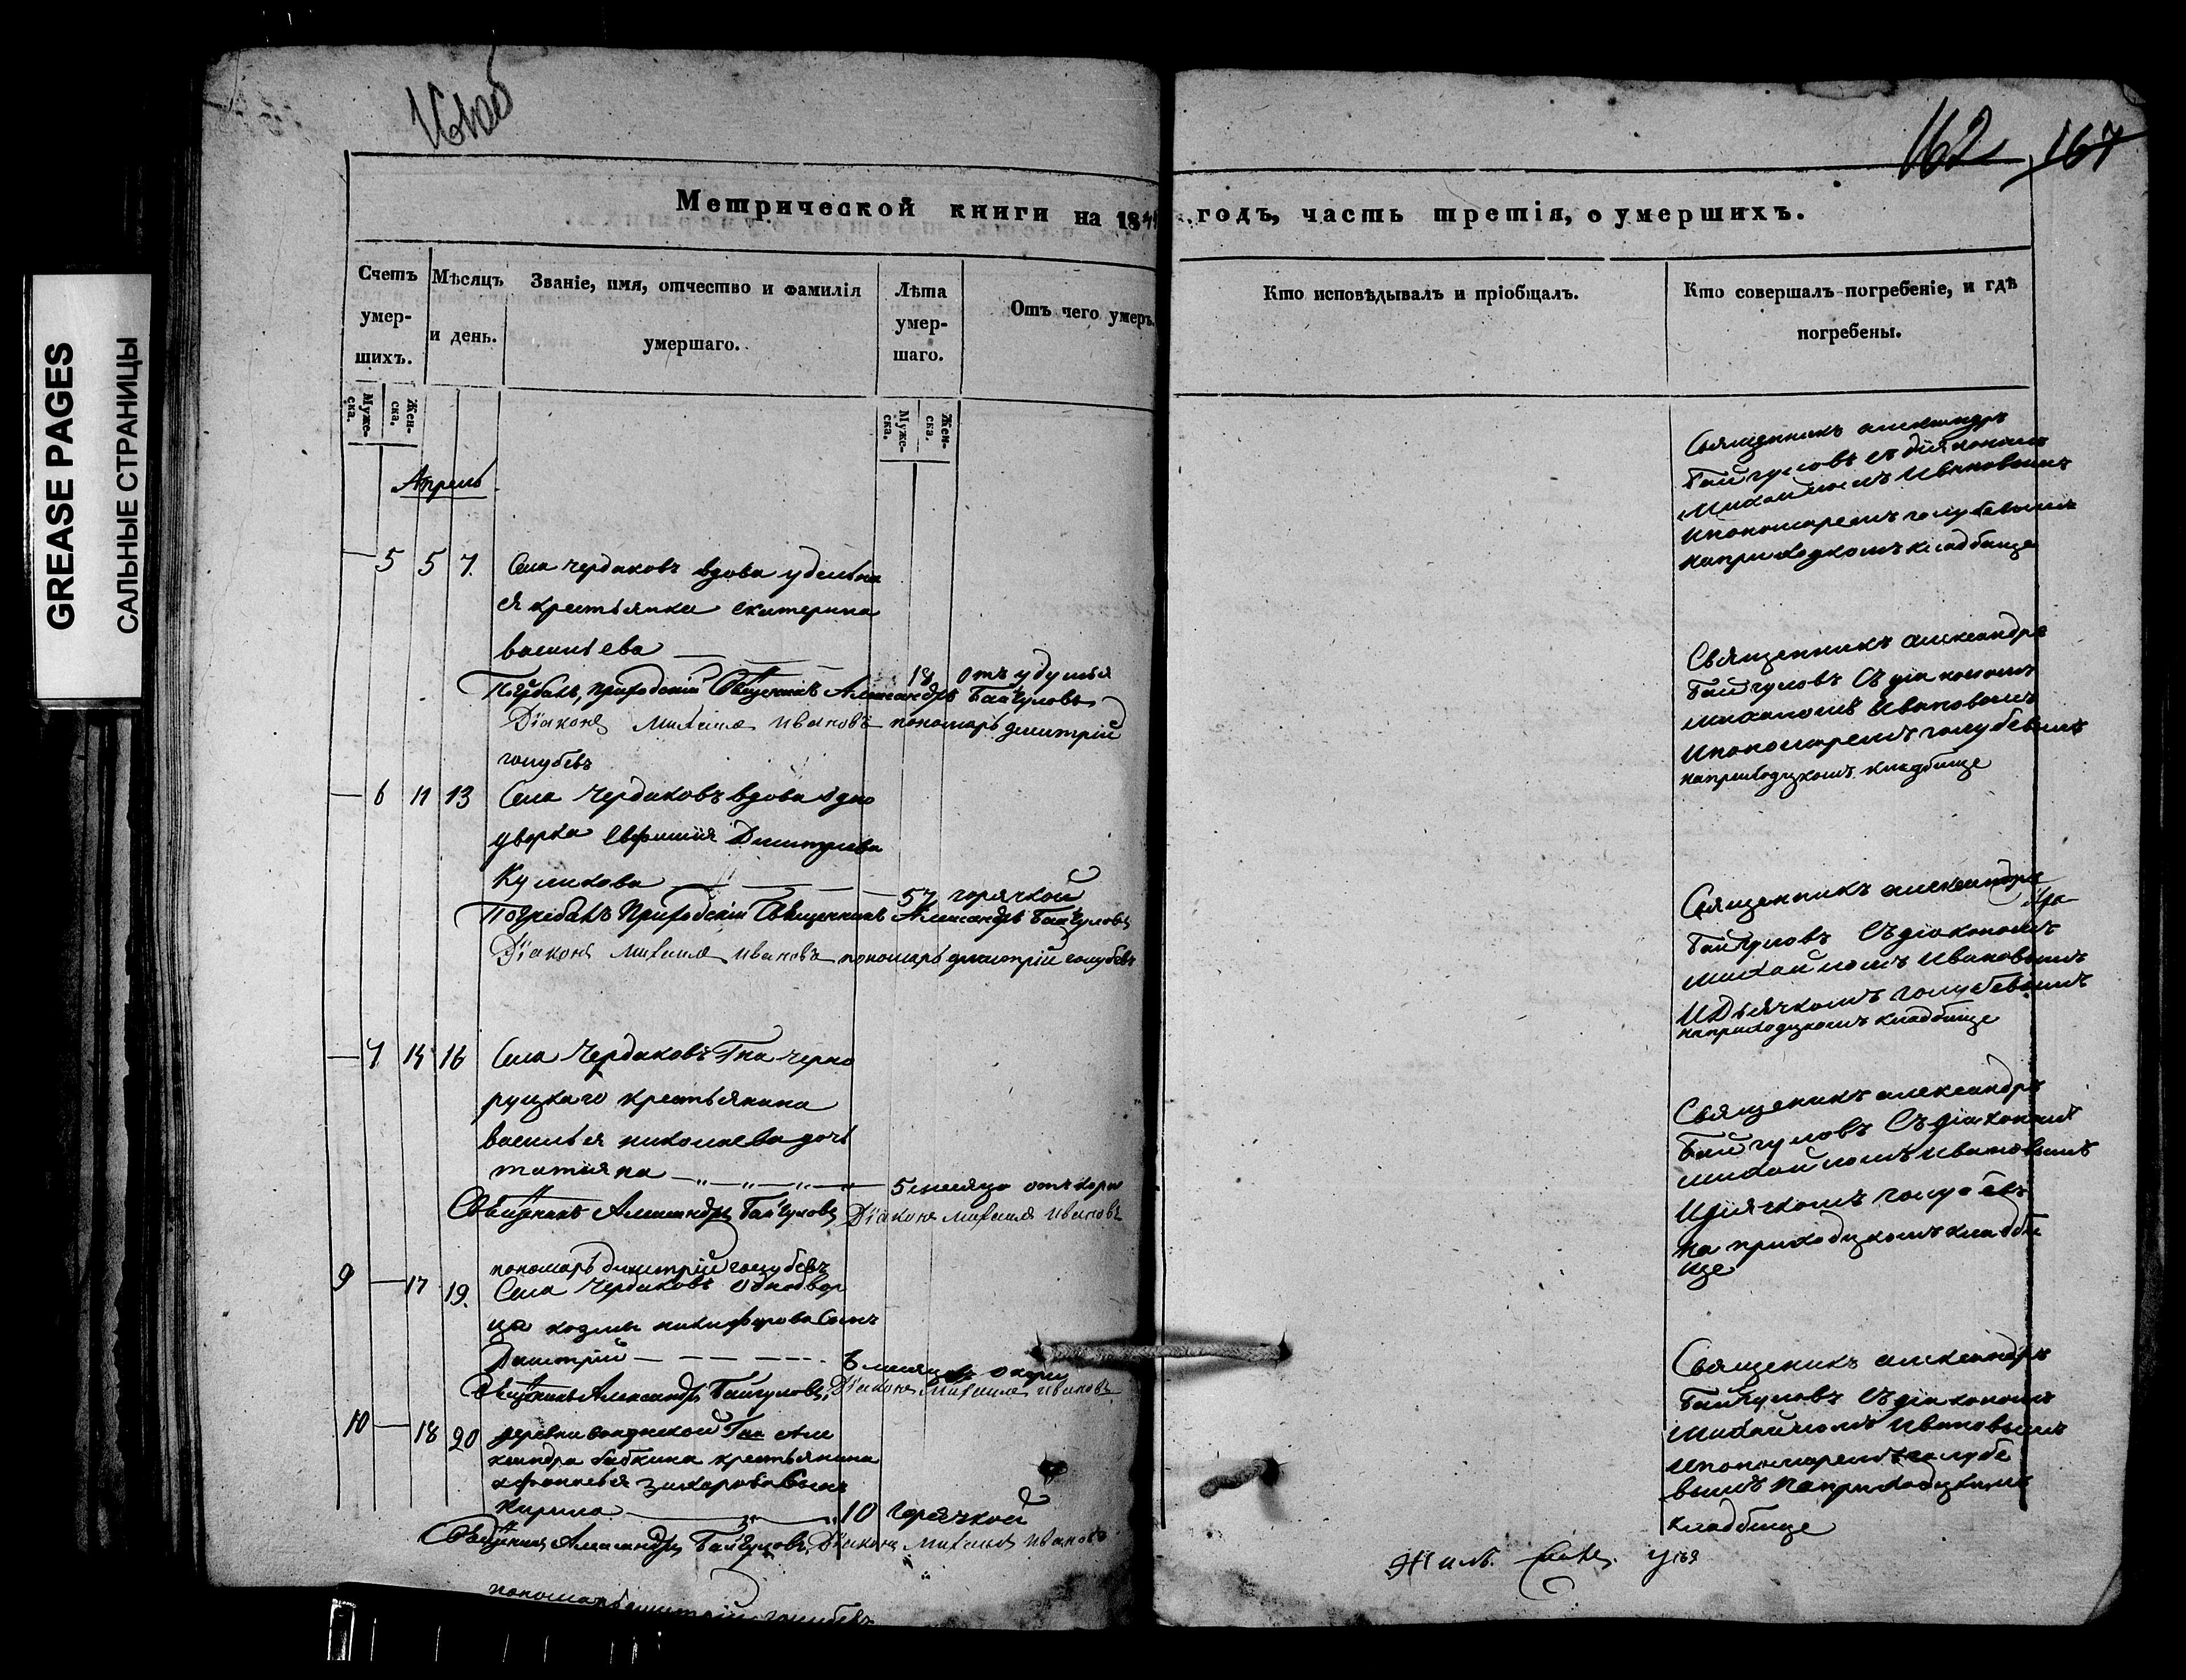 GREASE PAGES
САЛЬНЫЕ СТРАНИЦЫ
162 167
Метрической книги на 1844 годъ, часть третія, о умершихъ.
Счетъ умер-
шихъ.
Мѣсяцъ
и день.
Званіе, имя, отчество и фамилія
умершаго.
Лѣта
умер-
шаго.
Отъ чего умеръ.
Кто исповѣдывалъ и пріобщалъ.
Кто совершалъ погребеніе, и гдѣ
погребены.
Муже-
ска.
Жен-
ска.
Муже-
ска.
Жен-
ска.
Апрель
5 5 7. Села Чердаковъ вдова удельна
я крестьянка екатерина
васильева
18 отъ удушья
Погребалъ, приходский Священникъ Александръ Байгуловъ
Діаконъ Михаилъ Ивановъ пономарь димитрій
голубевъ
Священникъ александръ
Байгуловъ съ діякономъ
михайломъ Ивановымъ
ипономаремъ голубевымъ
наприходкомъ кладбище
6 11 13 Села Чердаковъ вдова одно
дворка Евфимия Димитриева
Куликова 57 горячкой
Погребалъ Приходскій Священникъ Александръ Байгуловъ
Діаконъ Михаилъ Ивановъ пономарь димитрій голубевъ
Священникъ александръ
Байгуловъ Съ діакономъ
михайломъ Ивановымъ
Ипономаремъ голубевымъ
наприходцкомъ кладбище
7 14 16 Села Чердаковъ Гна черно
руцкаго крестьянина
василья николаева дочь
татияна 5 месяцо отъ кори
Священникъ Александръ Байгуловъ Діаконъ Михаилъ Ивановъ
пономарь димитрій голубевъ
Священникъ александръ
Байгуловъ Съ діакономъ
михайломъ Ивановымъ
И Дьячкомъ голубевымъ
наприходцкомъ кладбище
9 17 19. Села Чердаковъ Однодвор
ца козмы никифорова Сынъ
Димтрій 6 месяцовъ о кори
Священникъ Александръ Байгуловъ, Діаконъ Михаилъ Ивановъ
Священикъ александръ
Байгуловъ Съ діакономъ
михайломъ Ивановымъ
Идиячкомъ голубевъ
на приходцкомъ кладби
ще
10 18 20 деревни Гна Але
ксандра бабкина крестьянина
афонасья захарова Сынъ
Кирило 10 горячкой
Священникъ Александръ Байгуловъ, Діаконъ Михаилъ Ивановъ
пономарь димитрій голубевъ
Священикъ александръ
Байгуловъ Съ діакономъ
михайломъ Ивановымъ
ипономаремъ голубе
вымъ наприходцкимъ
кладбище